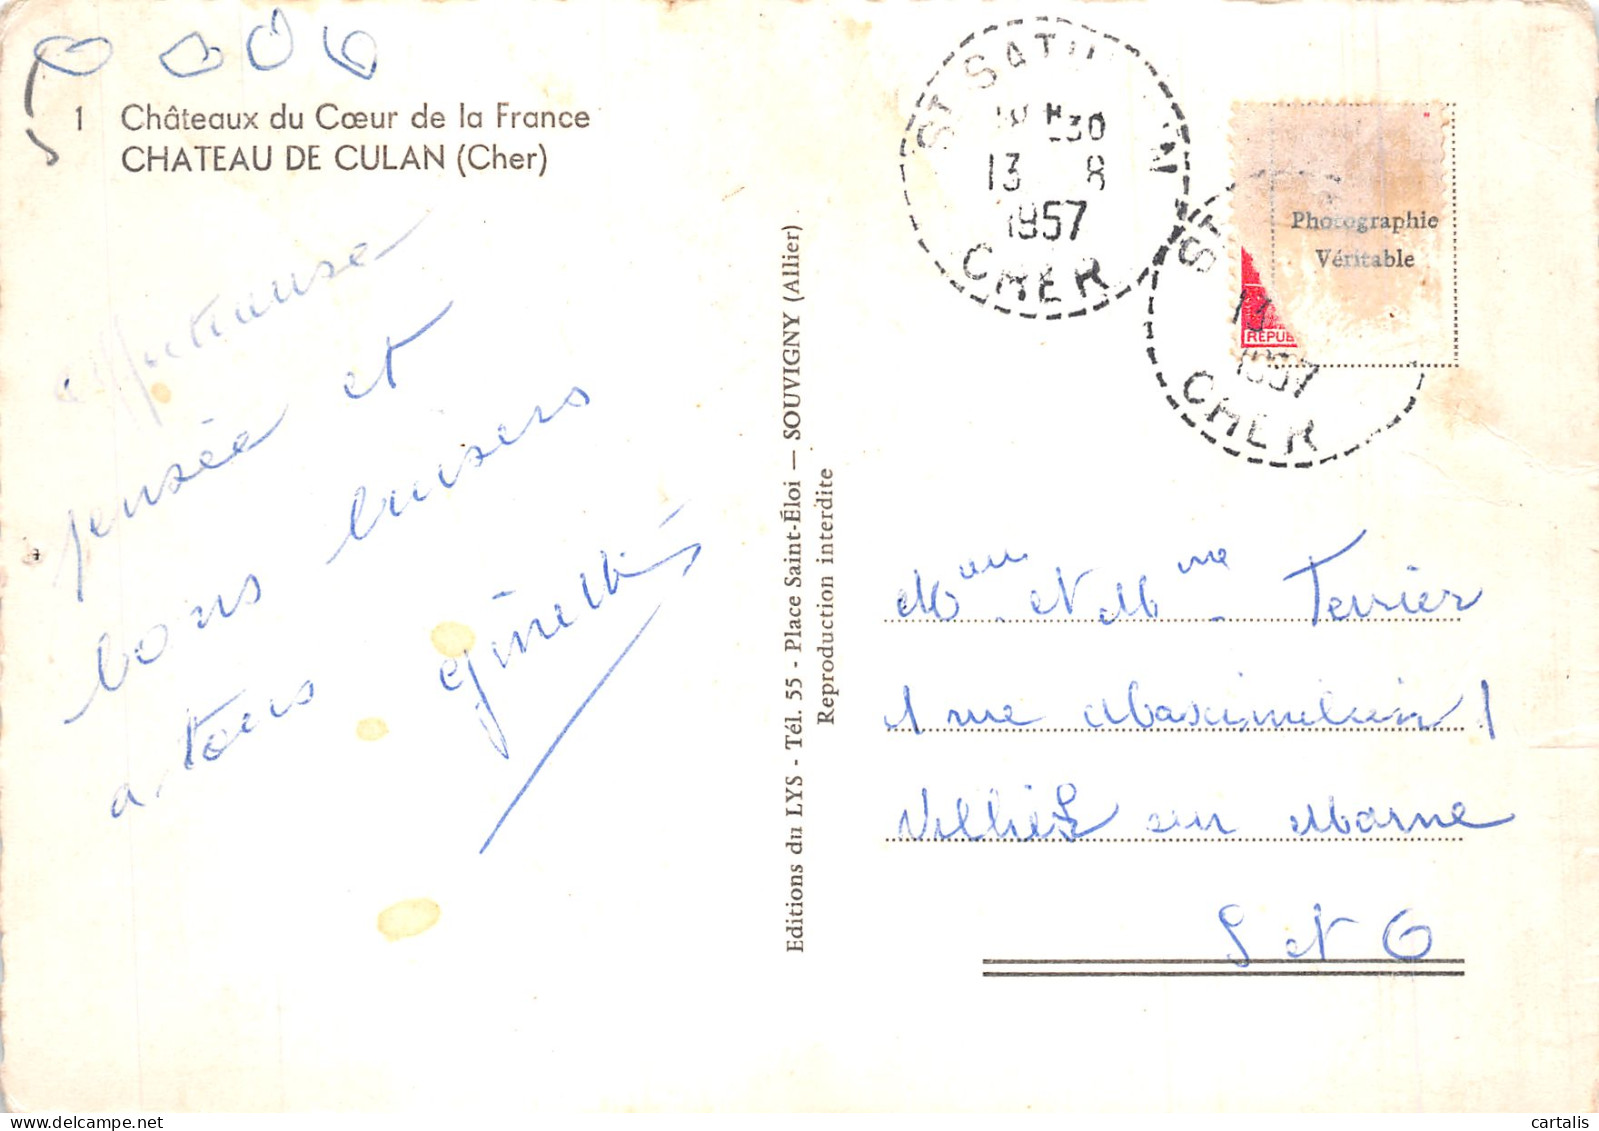 1 Châteaux du Cœur de la France
CHATEAU DE CULAN (Cher)
affectueuse
pensée et
bons baisers
a tous Ginette
Editions du LYS - Tél. 55 - Place Saint-Éloi — SOUVIGNY (Allier)
Reproduction interdite
ST SATU N
30
13 8
1957
CHER
ST
13
1957
CHER
Photographie
Véritable
REPUB
Mr et Mme Terrier
1 rue Maximilien
Villiers sur Marne
S et O
cartalis